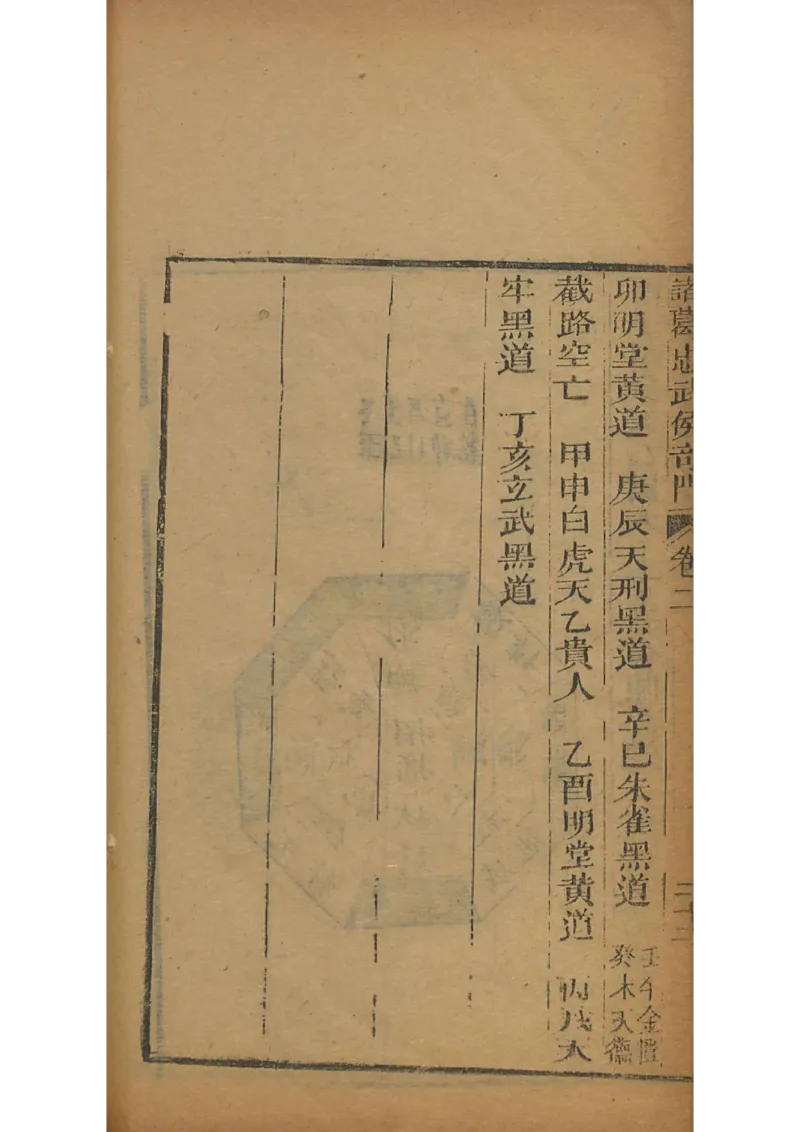 諸葛忠武侯奇門 卷二 二十三
卯明堂黃道 庚辰天刑黑道 辛巳朱雀黑道 壬午金匱
癸未天德
截路空亡 甲申白虎天乙貴人 乙酉明堂黃道 丙戌天
牢黑道 丁亥玄武黑道